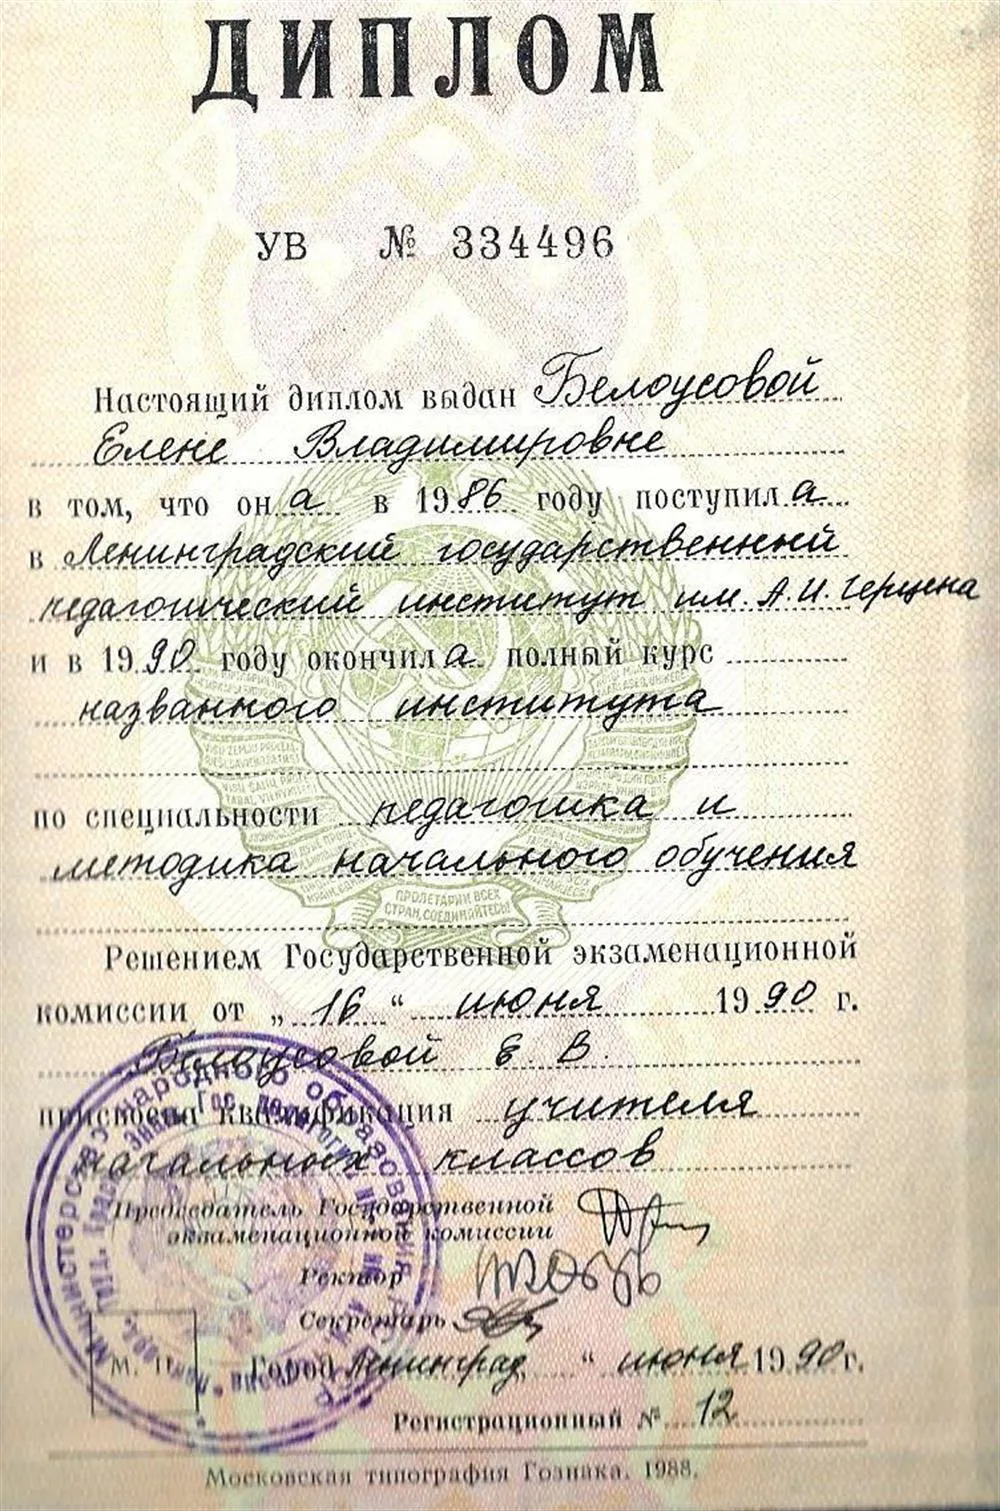 ДИПЛОМ
УВ № 334496
Настоящий диплом выдан Белоусовой
Елене Владимировне
в том, что он а в 1986 году поступил а
в Ленинградский государственный
педагогический институт им. А.И. Герцена
и в 1990 году окончил а полный курс
названного института
по специальности педагогика и
методика начального обучения
ПРОЛЕТАРИИ ВСЕХ
СТРАН, СОЕДИНЯЙТЕСЬ!
Решением Государственной экзаменационной
комиссии от „ 16 “ июня 1990 г.
Белоусовой Е. В.
присвоена квалификация учителя
начальных классов
Председатель Государственной
экзаменационной комиссии
Ректор
Секретарь
М. П.
Город Ленинград, “ июня 1990 г.
Регистрационный № 12
Министерство народного образования
Московская типография Гознака. 1988.